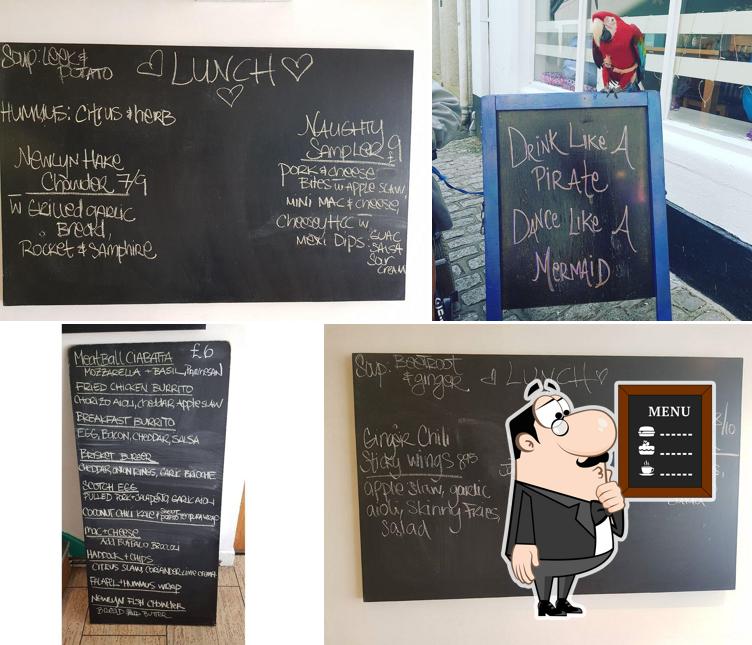 Soup: Leek &
Potato
LUNCH
Hummus: Citrus & herb
Newlyn Hake
Chowder 7/9
W Grilled garlic
Bread,
Rocket & Samphire
Naughty
Sampler £9
Pork & cheese
Bites w Apple Slaw,
Mini Mac & Cheese,
w
Mexi Dips: Guac
Salsa
Sour
Cream
Drink Like A
Pirate
Dance Like A
Mermaid
Meatball Ciabatta £6
Mozzarella + Basil, Parmesan
Fried Chicken Burrito
Chorizo Aioli, Cheddar, Apple Slaw
Breakfast Burrito
Egg, Bacon, Cheddar, Salsa
Brisket Burger
Cheddar, Onion Rings, Garlic Brioche
Scotch Egg
Pulled Pork + Jalapeno, Garlic Aioli
Coconut Chilli Kale & Sweet Potato Tempura Wrap
Mac + Cheese
Add Buffalo Broccoli
Haddock + Chips
Citrus Slaw, Coriander Lime Crema
Falafel + Hummus Wrap
Newlyn Fish Chowder
Bread + Butter
Soup: Beetroot
& ginger
LUNCH
Ginger Chilli
Sticky wings 8.95
apple slaw, garlic
aioli, Skinny Fries,
Salad
/10
MENU